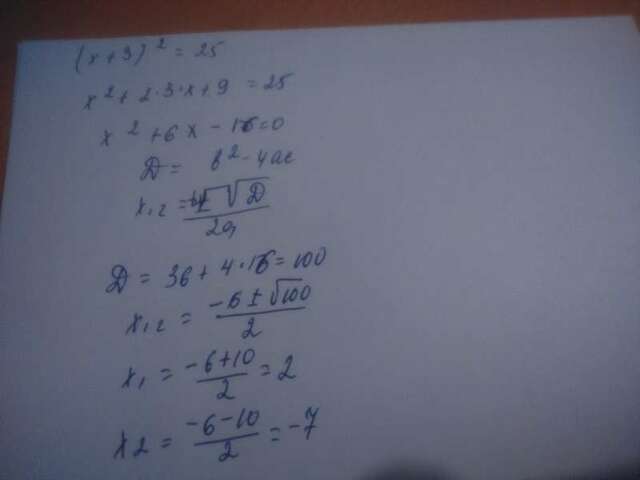 (x+3)² = 25
x² + 2·3·x + 9 = 25
x² + 6x - 16 = 0
D = b² - 4ac
x₁,₂ = ± √D / 2a
D = 36 + 4·16 = 100
x₁,₂ = -6 ± √100 / 2
x₁ = -6+10 / 2 = 2
x2 = -6-10 / 2 = -7